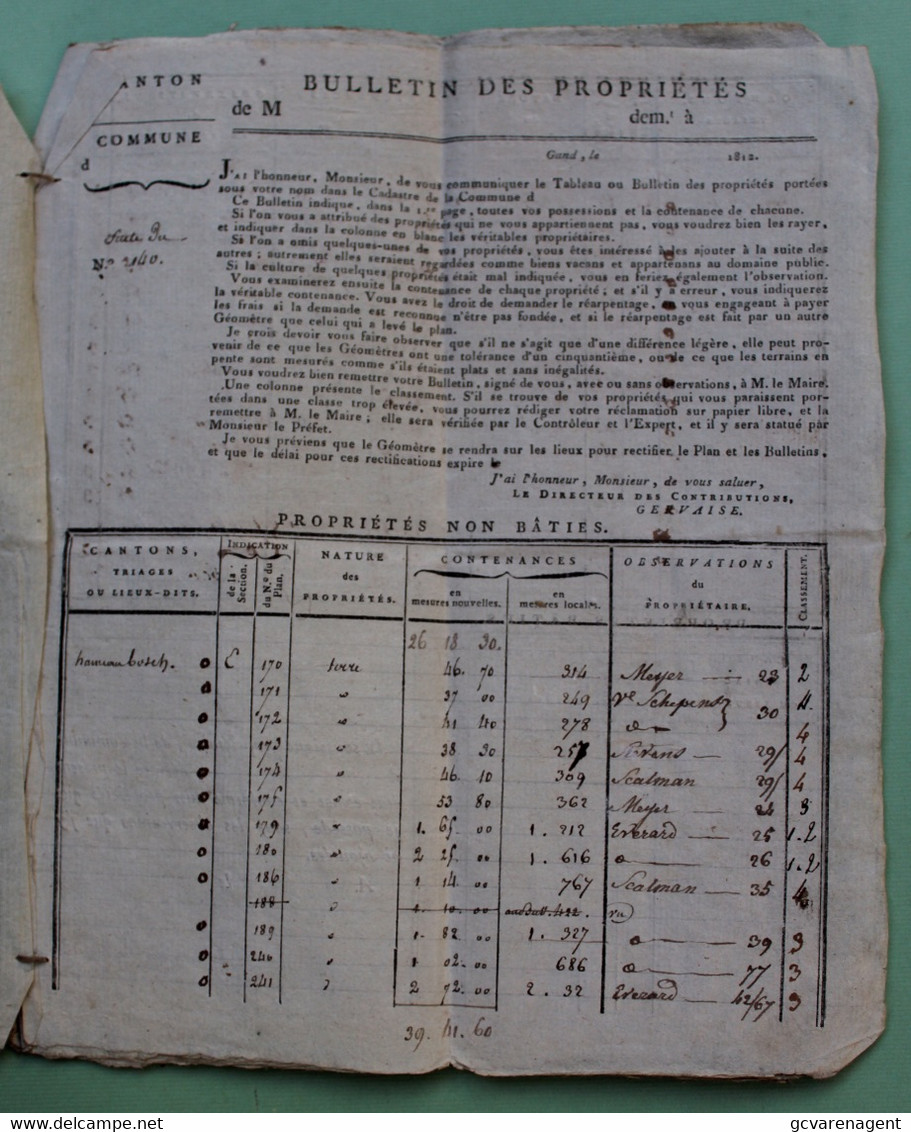 ANTON
BULLETIN DES PROPRIÉTÉS
de M dem.t à
COMMUNE
d
Gand, le 1812.
J'ai l'honneur, Monsieur, de vous communiquer le Tableau ou Bulletin des propriétés portées
sous votre nom dans le Cadastre de la Commune d
Ce Bulletin indique, dans la 1.re page, toutes vos possessions et la contenance de chacune.
Si l'on vous a attribué des propriétés qui ne vous appartiennent pas, vous voudrez bien les rayer,
et indiquer dans la colonne en blanc les véritables propriétaires.
Si l'on a omis quelques-unes de vos propriétés, vous êtes intéressé à les ajouter à la suite des
autres; autrement elles seraient regardées comme biens vacans et appartenans au domaine public.
Si la culture de quelques propriétés était mal indiquée, vous en feriez également l'observation.
Vous examinerez ensuite la contenance de chaque propriété; et s'il y a erreur, vous indiquerez
la véritable contenance. Vous avez le droit de demander le réarpentage, en vous engageant à payer
les frais si la demande est reconnue n'être pas fondée, et si le réarpentage est fait par un autre
Géomètre que celui qui a levé le plan.
Je crois devoir vous faire observer que s'il ne s'agit que d'une différence légère, elle peut pro-
venir de ce que les Géomètres ont une tolérance d'un cinquantième, ou de ce que les terrains en
pente sont mesurés comme s'ils étaient plats et sans inégalités.
Vous voudrez bien remettre votre Bulletin, signé de vous, avec ou sans observations, à M. le Maire.
Une colonne présente le classement. S'il se trouve de vos propriétés qui vous paraissent por-
tées dans une classe trop élevée, vous pourrez rédiger votre réclamation sur papier libre, et la
remettre à M. le Maire; elle sera vérifiée par le Contrôleur et l'Expert, et il y sera statué par
Monsieur le Préfet.
Je vous préviens que le Géomètre se rendra sur les lieux pour rectifier le Plan et les Bulletins,
et que le délai pour ces rectifications expire le
Suite du
N.o 2140.
J'ai l'honneur, Monsieur, de vous saluer,
Le Directeur des Contributions,
GERVAISE.
PROPRIÉTÉS NON BÂTIES.
CANTONS, TRIAGES OU LIEUX-DITS. INDICATION de la Section. du N.o du Plan. NATURE des PROPRIÉTÉS. CONTENANCES en mesures nouvelles. en mesures locales. OBSERVATIONS du PROPRIÉTAIRE. CLASSEMENT.
26 18 30.
hameau bosch. o E 170 terre 46. 70 314 Meyer 23 2
o 171 " 37 00 249 Ve Schepens 30 4.
o 172 " 41 40 278 4
o 173 " 38 30 257 29/ 4
o 174 " 46. 10 309 Scalman 29/ 4
o 175 " 53 80 362 Meyer 24 3
o 179 " 1. 65. 00 1. 212 Everard 25 1.2
o 180 " 2 25. 00 1. 616 26 1.2
o 186 " 1 14 00 767 Scalman 35 4
188 1. 10. 00
o 189 " 1. 82 00 1. 327 39 3
o 240 " 1 02. 00 686 77 3
o 241 2 72. 00 2. 32 Everard 42/67 3
39. 41. 60
gcvarenagent